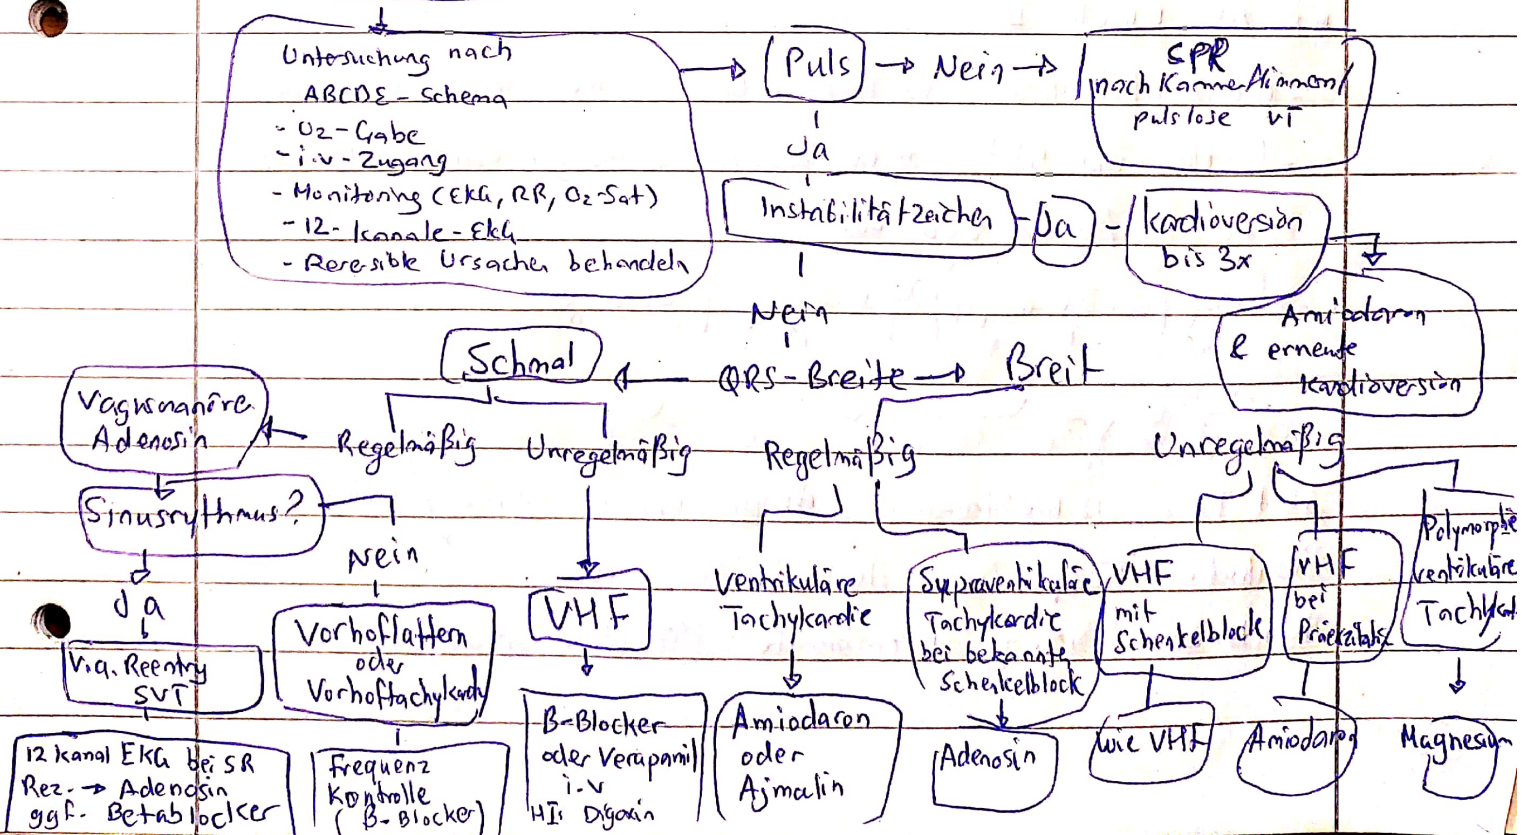 Untersuchung nach
ABCDE-Schema
- O2-Gabe
- i.v-Zugang
- Monitoring (EKG, RR, O2-Sat)
- 12-kanale-EKG
- Reresible Ursachen behandeln
Puls → Nein → CPR
nach Kammerflimmern/
pulslose VT
Ja
Instabilitätzeichen - Ja - Kardioversion
bis 3x
Amiodaron
& erneute
Kardioversion
Nein
Schmal ← QRS-Breite → Breit
Vagusmanöre
Adenosin
Regelmäßig
Unregelmäßig
Regelmäßig
Unregelmäßig
Sinusrythmus?
Nein
Ja
V.a. Reentry
SVT
12 kanal EKG bei SR
Rez. → Adenosin
ggf. Betablocker
Vorhoflattern
oder
Vorhoftachykardy
Frequenz
Kontrolle
(B-Blocker)
VHF
B-Blocker
oder Verapamil
i.v
HI: Digoxin
Ventrikuläre
Tachykardie
Amiodaron
oder
Ajmalin
Supraventrikuläre
Tachykardie
bei bekannte
Schenkelblock
Adenosin
VHF
mit
Schenkelblock
wie VHF
VHF
bei
Amiodaron
Polymorphe
ventrikuläre
Magnesium